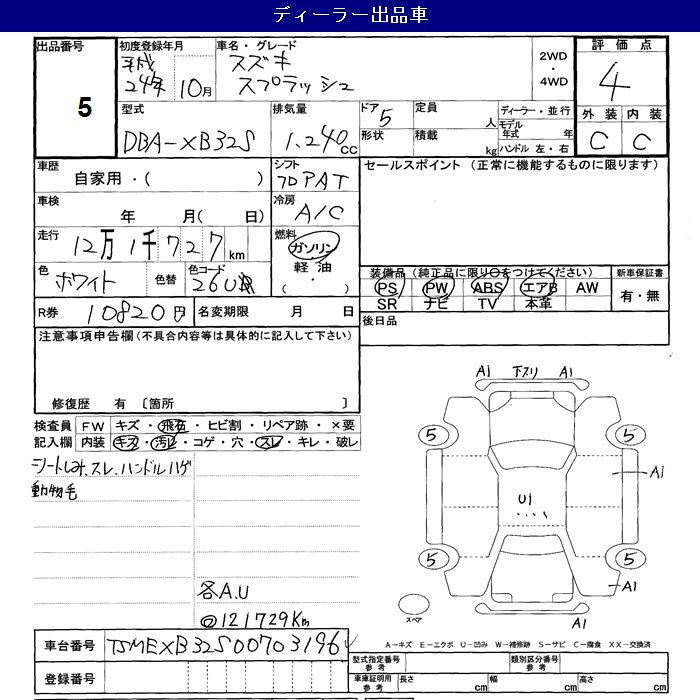 ディーラー出品車
出品番号 初度登録年月 車名・グレード 評価点
5 平成24年 10月 スズキ スプラッシュ 2WD・4WD 4
外装 内装
C C
型式 排気量 ドア 5 定員 人 ディーラー・並行
DBA-XB32S 1,240cc 形状 積載 kg モデル年式 年
ハンドル 左・右
車歴 シフト セールスポイント (正常に機能するものに限ります)
自家用・( ) フロアAT
車検 冷房
年 月( 日) A/C
走行 燃料
12万1千727km ガソリン
軽油
・( )
色 色替 色コード
ホワイト 26U
装備品 (純正品に限り○をつけてください) 新車保証書
PS PW ABS エアB AW 有・無
SR ナビ TV 本革
R券 10820円 名変期限 月 日 後日品
注意事項申告欄(不具合内容等は具体的に記入して下さい)
修復歴 有 〔箇所 〕
検査員記入欄 FW キズ・飛石・ヒビ割・リペア跡・×要
内装 キズ・汚レ・コゲ・穴・スレ・キレ・破レ
シートしみ、スレ、ハンドルハゲ
動物毛
A1 下スリ A1
5 5
A1
U1
5 5
A1
A1
スペア
各A.U
◎121729Km
A-キズ E-エクボ U-凹み W-補修跡 S-サビ C-腐食 XX-交換済
車台番号 TSMEXB32S00703196
型式指定番号 参考 類別区分番号 参考
登録番号 車庫証明用 参考 長さ cm 幅 cm 高さ cm